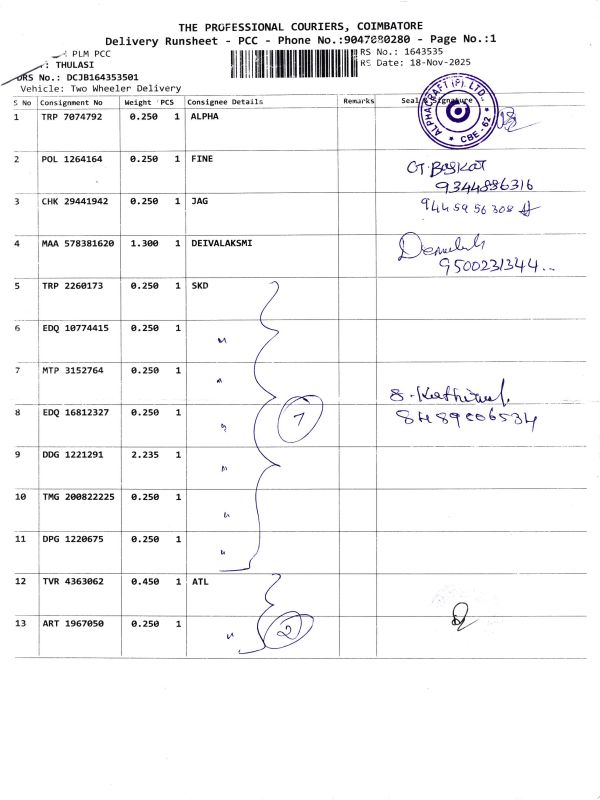 THE PROFESSIONAL COURIERS, COIMBATORE
Delivery Runsheet - PCC - Phone No.:9047080280 - Page No.:1
: PLM PCC
: THULASI
DRS No.: DCJB164353501
Vehicle: Two Wheeler Delivery
RS No.: 1643535
RS Date: 18-Nov-2025
S No Consignment No Weight PCS Consignee Details Remarks Seal & Signature
ALPHACRAFT (P). LTD., * CBE - 62 *
1 TRP 7074792 0.250 1 ALPHA
2 POL 1264164 0.250 1 FINE
9344886316
3 CHK 29441942 0.250 1 JAG
9445956308
4 MAA 578381620 1.300 1 DEIVALAKSMI
9500231344..
5 TRP 2260173 0.250 1 SKD
6 EDQ 10774415 0.250 1 "
7 MTP 3152764 0.250 1 "
8 EDQ 16812327 0.250 1 " 7
8489006534
9 DDG 1221291 2.235 1 "
10 TMG 200822225 0.250 1 "
11 DPG 1220675 0.250 1 "
12 TVR 4363062 0.450 1 ATL
13 ART 1967050 0.250 1 " 2